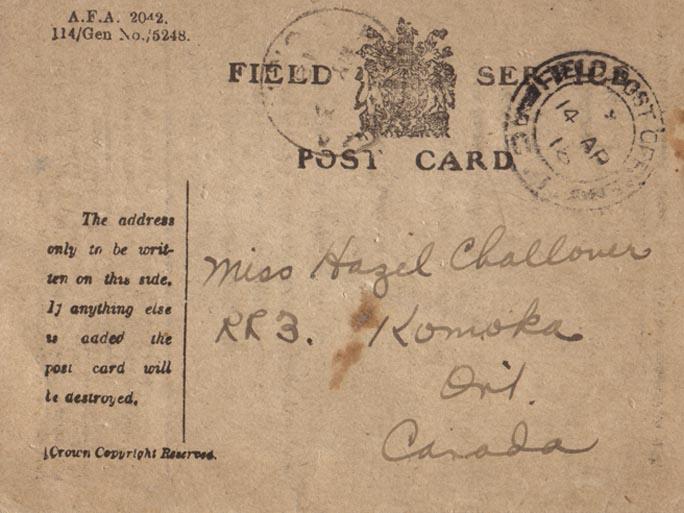 A.F.A. 2042.
114/Gen No./5248.
FIELD SERVICE
POST CARD
FIELD POST OFFICE
14 AP
The address
only to be writ-
ten on this side.
If anything else
is added the
post card will
be destroyed.
[Crown Copyright Reserved.
Miss Hazel Challover
RR3. Komoka
Ont.
Canada